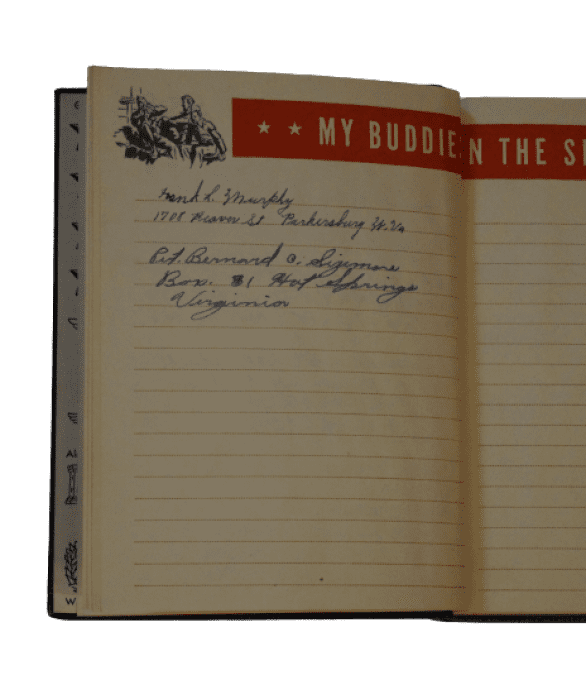 ★ ★ MY BUDDIE
N THE SE
Frank L. Murphy
1708 St Parkersburg W. Va
Pvt. Bernard C. Sizemore
Box. 81 Hot Springs
Virginia
W